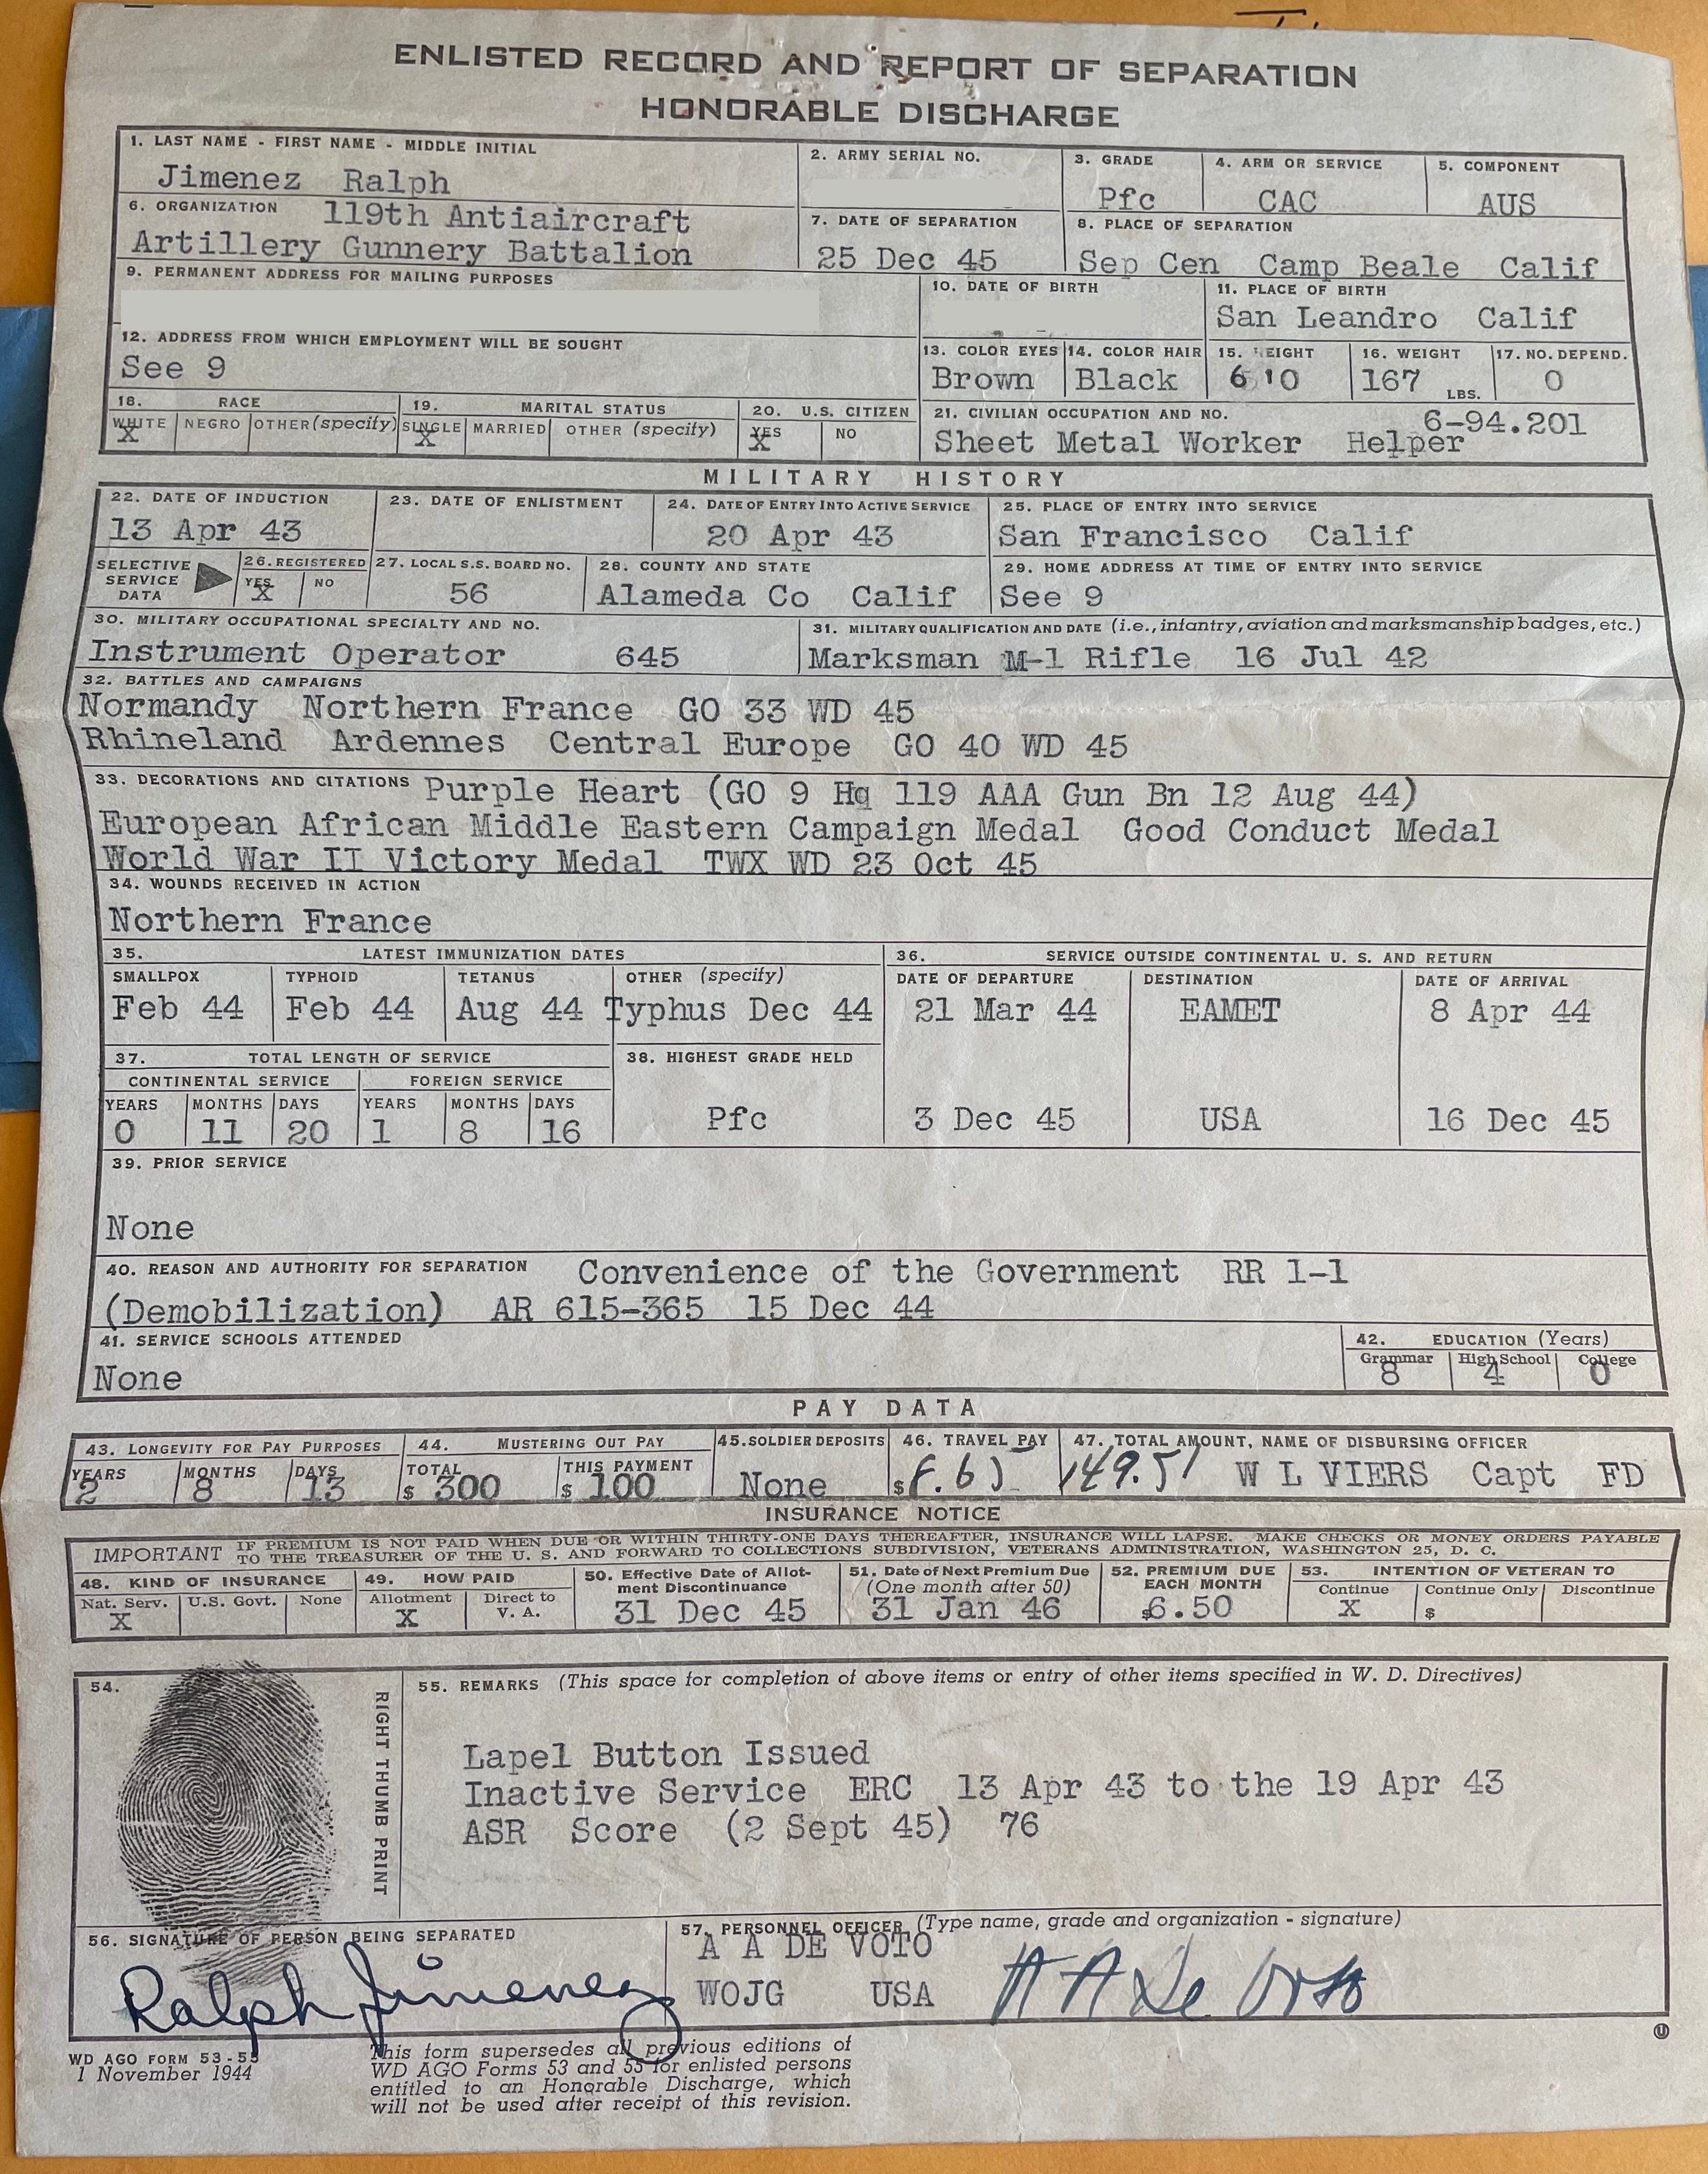 ENLISTED RECORD AND REPORT OF SEPARATION
HONORABLE DISCHARGE
1. LAST NAME - FIRST NAME - MIDDLE INITIAL
Jimenez Ralph
2. ARMY SERIAL NO.
3. GRADE
Pfc
4. ARM OR SERVICE
CAC
5. COMPONENT
AUS
6. ORGANIZATION 119th Antiaircraft
Artillery Gunnery Battalion
7. DATE OF SEPARATION
25 Dec 45
8. PLACE OF SEPARATION
Sep Cen Camp Beale Calif
9. PERMANENT ADDRESS FOR MAILING PURPOSES
10. DATE OF BIRTH
11. PLACE OF BIRTH
San Leandro Calif
12. ADDRESS FROM WHICH EMPLOYMENT WILL BE SOUGHT
See 9
13. COLOR EYES
Brown
14. COLOR HAIR
Black
15. HEIGHT
6'0
16. WEIGHT
167 LBS.
17. NO. DEPEND.
0
18. RACE
WHITE NEGRO OTHER (specify)
X
19. MARITAL STATUS
SINGLE MARRIED OTHER (specify)
X
20. U.S. CITIZEN
YES NO
X
21. CIVILIAN OCCUPATION AND NO.
6-94.201
Sheet Metal Worker Helper
MILITARY HISTORY
22. DATE OF INDUCTION
13 Apr 43
23. DATE OF ENLISTMENT
24. DATE OF ENTRY INTO ACTIVE SERVICE
20 Apr 43
25. PLACE OF ENTRY INTO SERVICE
San Francisco Calif
SELECTIVE
SERVICE
DATA
26. REGISTERED
YES NO
X
27. LOCAL S.S. BOARD NO.
56
28. COUNTY AND STATE
Alameda Co Calif
29. HOME ADDRESS AT TIME OF ENTRY INTO SERVICE
See 9
30. MILITARY OCCUPATIONAL SPECIALTY AND NO.
Instrument Operator 645
31. MILITARY QUALIFICATION AND DATE (i.e., infantry, aviation and marksmanship badges, etc.)
Marksman M-1 Rifle 16 Jul 42
32. BATTLES AND CAMPAIGNS
Normandy Northern France GO 33 WD 45
Rhineland Ardennes Central Europe GO 40 WD 45
33. DECORATIONS AND CITATIONS Purple Heart (GO 9 Hq 119 AAA Gun Bn 12 Aug 44)
European African Middle Eastern Campaign Medal Good Conduct Medal
World War II Victory Medal TWX WD 23 Oct 45
34. WOUNDS RECEIVED IN ACTION
Northern France
35. LATEST IMMUNIZATION DATES
SMALLPOX TYPHOID TETANUS OTHER (specify)
Feb 44 Feb 44 Aug 44 Typhus Dec 44
36. SERVICE OUTSIDE CONTINENTAL U. S. AND RETURN
DATE OF DEPARTURE DESTINATION DATE OF ARRIVAL
21 Mar 44 EAMET 8 Apr 44
3 Dec 45 USA 16 Dec 45
37. TOTAL LENGTH OF SERVICE
CONTINENTAL SERVICE FOREIGN SERVICE
YEARS MONTHS DAYS YEARS MONTHS DAYS
0 11 20 1 8 16
38. HIGHEST GRADE HELD
Pfc
39. PRIOR SERVICE
None
40. REASON AND AUTHORITY FOR SEPARATION Convenience of the Government RR 1-1
(Demobilization) AR 615-365 15 Dec 44
41. SERVICE SCHOOLS ATTENDED
None
42. EDUCATION (Years)
Grammar High School College
8 4 0
PAY DATA
43. LONGEVITY FOR PAY PURPOSES
YEARS MONTHS DAYS
2 8 13
44. MUSTERING OUT PAY
TOTAL THIS PAYMENT
$ 300 $ 100
45. SOLDIER DEPOSITS
None
46. TRAVEL PAY
$
47. TOTAL AMOUNT, NAME OF DISBURSING OFFICER
149.51 W L VIERS Capt FD
INSURANCE NOTICE
IMPORTANT IF PREMIUM IS NOT PAID WHEN DUE OR WITHIN THIRTY-ONE DAYS THEREAFTER, INSURANCE WILL LAPSE. MAKE CHECKS OR MONEY ORDERS PAYABLE
TO THE TREASURER OF THE U. S. AND FORWARD TO COLLECTIONS SUBDIVISION, VETERANS ADMINISTRATION, WASHINGTON 25, D. C.
48. KIND OF INSURANCE
Nat. Serv. U.S. Govt. None
X
49. HOW PAID
Allotment Direct to
V. A.
X
50. Effective Date of Allot-
ment Discontinuance
31 Dec 45
51. Date of Next Premium Due
(One month after 50)
31 Jan 46
52. PREMIUM DUE
EACH MONTH
$6.50
53. INTENTION OF VETERAN TO
Continue Continue Only Discontinue
X $
54.
RIGHT THUMB PRINT
55. REMARKS (This space for completion of above items or entry of other items specified in W. D. Directives)
Lapel Button Issued
Inactive Service ERC 13 Apr 43 to the 19 Apr 43
ASR Score (2 Sept 45) 76
56. SIGNATURE OF PERSON BEING SEPARATED
Ralph Jimenez
57. PERSONNEL OFFICER (Type name, grade and organization - signature)
A A DE VOTO
WOJG USA
A A De Voto
WD AGO FORM 53-55
1 November 1944
This form supersedes all previous editions of
WD AGO Forms 53 and 55 for enlisted persons
entitled to an Honorable Discharge, which
will not be used after receipt of this revision.